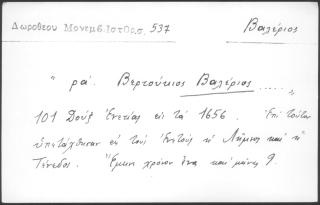 Δωροθεου Μονεμβ. Ιστορ. 537 Βαλέριος
" ρα'. Βερτούκιος Βαλέριος ..... "
101 Δούξ Ενετίας εις τα 1656. Επί τούτου
υπετάχθησαν εις τους Ενετούς κ Λήμνος και κ
Τένεδος. Έμεινε χρόνον ένα και μήνες 9.